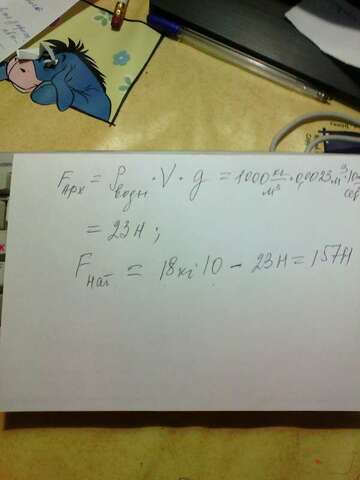 Fарх = ρводы · V · g = 1000 кг/м³ · 0,0023 м³ · 10
= 23 Н ;
Fнат = 18 кг·10 – 23 Н = 157 Н